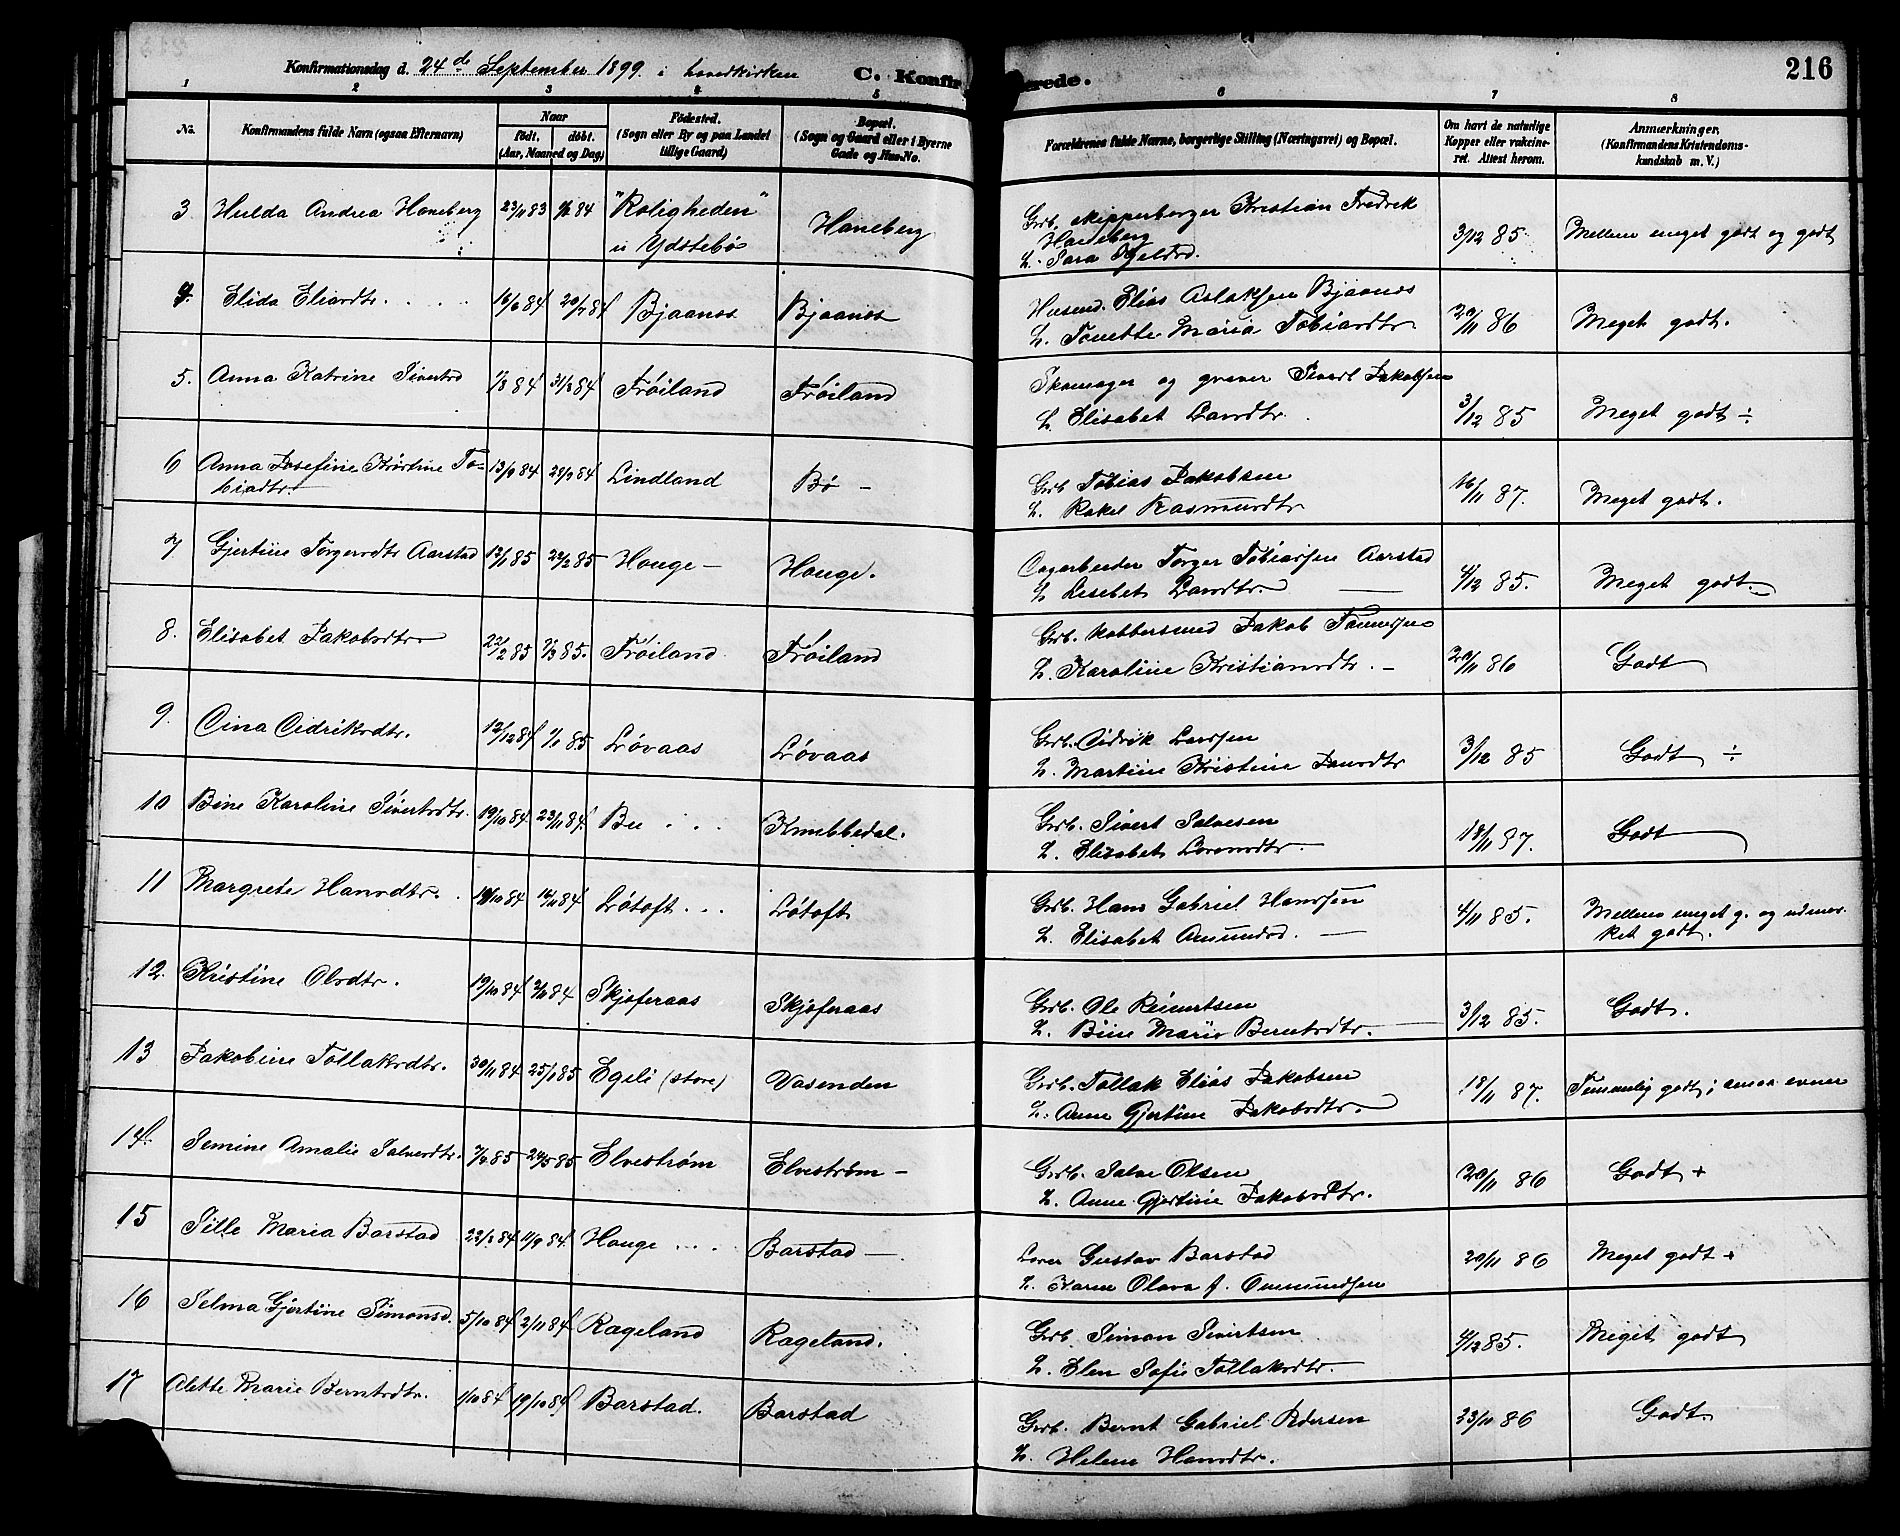 216
Konfirmationsdag d. 24de September 1899 i hovedkirken C. Konfir rede.
1 2 3 4 5 6 7 8
No. Konfirmandens fulde Navn (ogsaa Efternavn) Naar født. døbt. (Aar, Maaned og Dag) Fødested. (Sogn eller By og paa Landet tillige Gaard) Bopæl. (Sogn og Gaard eller i Byerne Gade og Hus-No. Forældrenes fulde Navne, borgerlige Stilling (Næringsvei) og Bopæl. Om havt de naturlige Kopper eller vakcineret. Attest herom. Anmærkninger. (Konfirmandens Kristendomskundskab m. V.)
3 Hulda Andrea Haneberg 23/11 83 84 "Roligheden" u Ydstebø Haneberg
Grb. skipperborger Kristian Fredrik Haneberg
H. Sara Kjeldsd. 3/12 85 Mellem meget godt og godt
4. Elida Eliasdtr. 16/6 84 20/7 84 Bjaanes Bjaanes
Husmd. Elias Aslaksen Bjaanes
H. Tonette Maria Tobiasdtr 20/11 86 Meget godt.
5. Anna Katrine Sivertsd 1/8 84 31/8 84 Frøiland Frøiland
Skomager og graver Sivert Jakobsen
H. Elisabet Larsdtr. 3/12 85 Meget godt ÷
6 Anna Josefine Kristine Tobiasdtr. 13/9 84 28/9 84 Lindland Bø –
Grb Tobias Jakobsen
H. Rakel Rasmusdtr 16/11 87. Meget godt.
7 Gjertine Torgersdtr Aarstad 12/1 85 22/2 85 Houge – Houge.
Dagarbeider Torger Tobiassen Aarstad
H Lisebet Larsdtr. 4/12 85. Meget godt.
8. Elisabet Jakobsdtr 22/2 85 7/3 85. Frøiland Frøiland
Grb. kobbersmed Jakob Tønnessen
H. Karoline Kristiansdtr. – 20/11 86 Godt
9. Dina Didriksdtr. 12/12 84 1/1 85 Løvaas Løvaas
Grb. Didrik Larssen
H. Martine Kristine Larsdtr 3/12 85 Godt ÷
10 Bine Karoline Sivertsdtr. 19/10 84 23/11 84. Bu Knubbedal.
Grb. Sivert Salvesen
H. Elisabet Larsdtr. 18/11 87. Godt
11 Margrete Hansdtr. 10/10 84 16/11 84 Løtoft Løtoft
Grb. Hans Gabriel Hanssen
H. Elisabet Amundsd. – 4/11 85. Mellem meget g. og udmærket godt.
12. Kristine Olsdtr. 19/10 84 2/11 84 Skjøferaas Skjøferaas
Grb. Ole Reinertsen
H. Bine Marie Berntsdtr. 3/12 85. Godt.
13 Jakobine Tollaksdtr. 30/11 84 25/1 85 Egeli (store) Vasenden
Grb. Tollak Elias Jakobsen
H. Anne Gjertine Jakobsdtr. 18/11 87. Temmelig godt; smaa evner
14. Semine Amalie Salvesdtr. 7/4 85 24/5 85 Elvestrøm Elvestrøm –
Grb. Salve Olsen
H. Anne Gjertine Jakobsdtr. 20/11 86 Godt +
15 Sille Maria Barstad 22/8 84 11/9 84 Houge Barstad –
Gustav Barstad
H. Karen Olava f. Ommundsen 20/11 86 Meget godt +
16 Selma Gjertine Simonsd. 5/10 84 2/11 84 Rageland Rageland.
Grb. Simon Sivertsen
H. Elen Sofie Tollaksdtr. 4/12 85. Meget godt
17 Alette Marie Berntsdtr. 1/10 84 19/10 84 Barstad. Barstad
Grb. Bernt Gabriel Pedersen
H. Helene Hansdtr. 23/11 86 Godt.